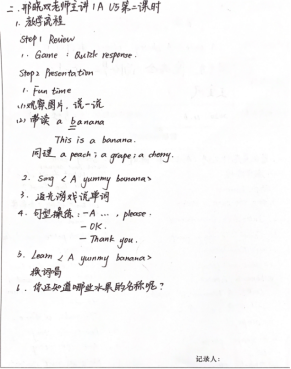 二.邢晓双老师主讲1A U5第二课时
1. 教学流程
Step1 Review
1. Game : Quick response.
Step2 Presentation
1. Fun time
(1)观察图片，说一说
(2) 带读 a banana
This is a banana.
同理 a peach; a grape; a cherry.
2. Song < A yummy banana>
3. 追光游戏说单词
4. 句型操练: -A ..., please.
- OK.
- Thank you.
5. Learn < A yummy banana>
换词唱
6. 你还知道哪些水果的名称呢?
记录人: